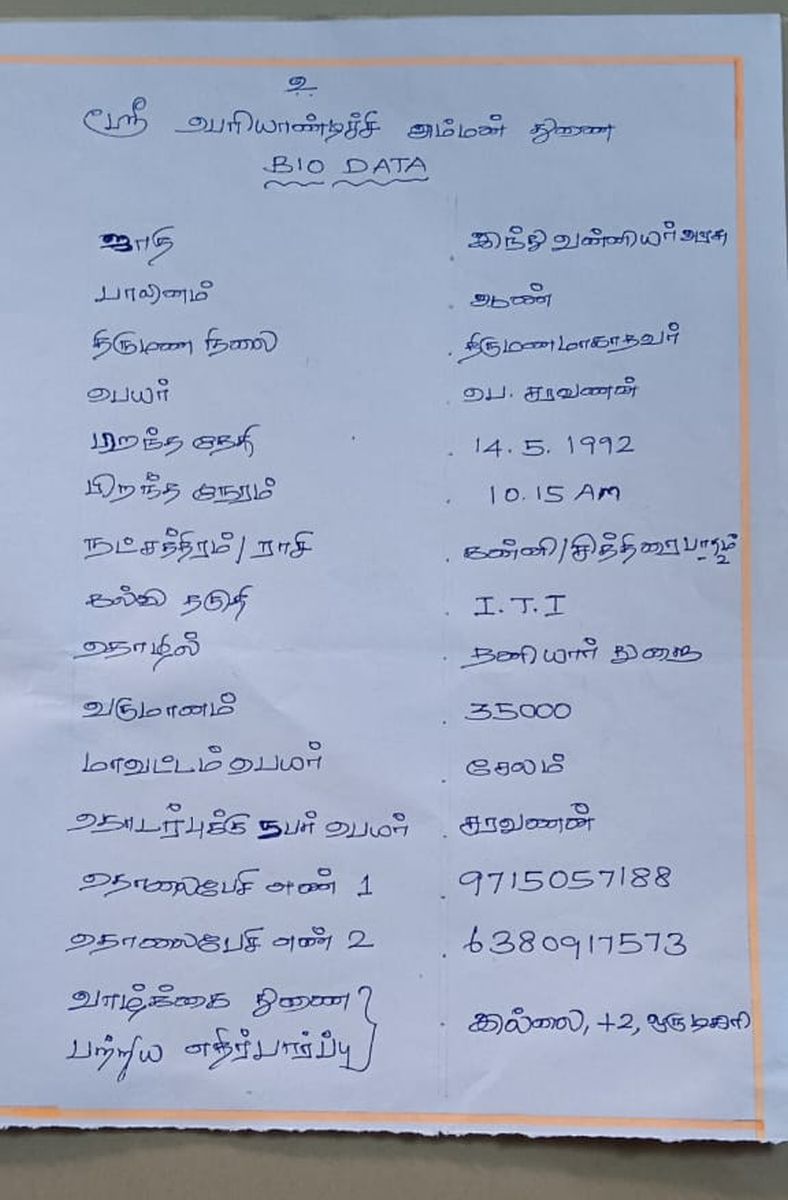 உ
ஸ்ரீ பெரியாண்டிச்சி அம்மன் துணை
BIO DATA
ஜாதி . இந்து வன்னியர்
பாலினம் . ஆண்
திருமண நிலை . திருமணமாகாதவர்
பெயர் . பெ. சரவணன்
பிறந்த தேதி . 14. 5. 1992
பிறந்த நேரம் . 10.15 AM
நட்சத்திரம்/ ராசி . கன்னி/சித்திரை பாதம் 2
கல்வி தகுதி . I.T.I
தொழில் . தனியார் துறை
வருமானம் . 35000
மாவட்டம் பெயர் . சேலம்
தொடர்புக்கு நபர் பெயர் . சரவணன்
தொலைபேசி எண் 1 . 9715057188
தொலைபேசி எண் 2 . 6380917573
வாழ்க்கை துணை
பற்றிய எதிர்பார்ப்பு . இல்லை, +2,